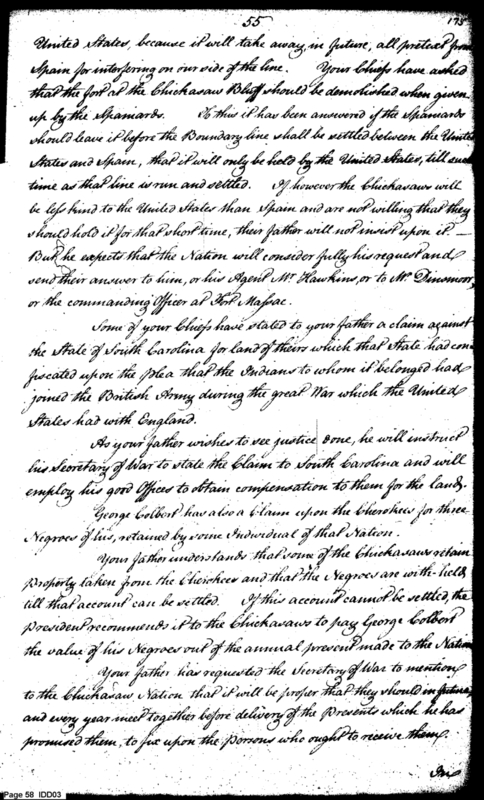 55
175
United States, because it will take away, in future, all pretext from
Spain for interfering on our side of the line. Your Chiefs have asked
that the fort at the Chickasaw Bluff should be demolished when given
up by the Spaniards. To this it has been answered if the Spaniards
should leave it before the Boundary line shall be settled between the United
States and Spain, that it will only be held by the United States, till such
time as that line is run and settled. If however the Chickasaws will
be less kind to the United States than Spain and are not willing that they
should hold it for that short time, their father will not insist upon it —
But he expects that the Nation will consider fully his request and
send their answer to him, or his Agent Mr. Hawkins, or to Mr. Dinsmoor,
or the commanding Officer at Fort Massac.
Some of your Chiefs have stated to your father a claim against
the State of South Carolina for land of theirs which that State had con
fiscated upon the plea that the Indians to whom it belonged had
joined the British Army during the great War which the United
States had with England.
As your father wishes to see justice done, he will instruct
his Secretary of War to state the Claim to South Carolina and will
employ his good Offices to obtain compensation to them for the land.
George Colbert has also a Claim upon the Cherokees for three
Negroes of his, retained by some Individual of that Nation.
Your father understands that some of the Chickasaws retain
property taken from the Cherokees and that the Negroes are with-held
till that account can be settled. If this account cannot be settled, the
President recommends it to the Chickasaws to pay George Colbert
the value of his Negroes out of the annual present made to the Nation
Your father has requested the Secretary of War to mention
to the Chickasaw Nation that it will be proper that they should in future
and every year meet together before delivery of the Presents which he has
promised them, to fix upon the Persons who ought to receive them.
Page 58 IDD03